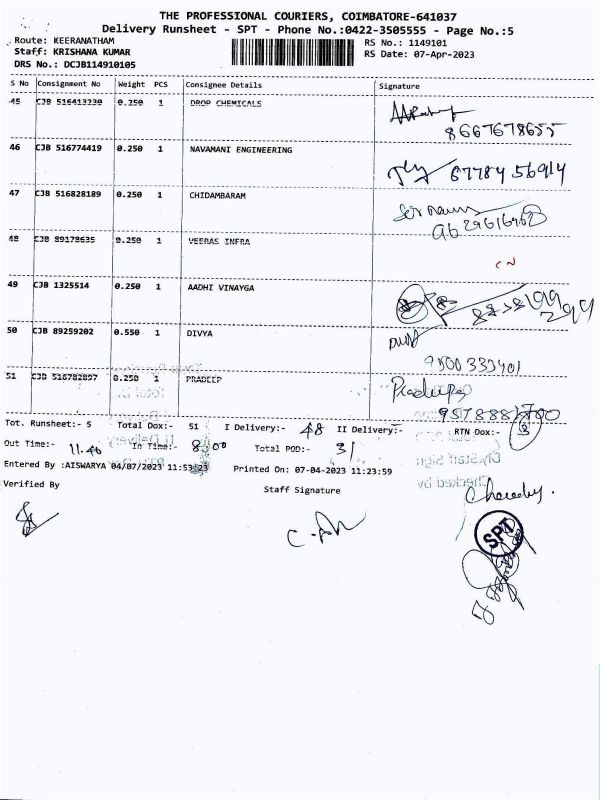 THE PROFESSIONAL COURIERS, COIMBATORE-641037
Delivery Runsheet - SPT - Phone No.:0422-3505555 - Page No.:5
Route: KEERANATHAM
RS No.: 1149101
Staff: KRISHANA KUMAR
RS Date: 07-Apr-2023
DRS No.: DCJB114910105
S No Consignment No Weight PCS Consignee Details Signature
45 CJB 516413230 0.250 1 DROP CHEMICALS
8667678655
46 CJB 516774419 0.250 1 NAVAMANI ENGINEERING
87784 56914
47 CJB 516828189 0.250 1 CHIDAMBARAM
48 CJB 89178635 0.250 1 VEERAS INFRA
CN
49 CJB 1325514 0.250 1 AADHI VINAYGA
50 CJB 89259202 0.550 1 DIVYA
9500333401
51 CJB 516782897 0.250 1 PRADEEP
Pradeep
Tot. Runsheet:- 5 Total Dox:- 51 I Delivery:- 48 II Delivery:- RTN Dox:- 3
Out Time:- 11.40 In Time:- 8.00 Total POD:- 31
Entered By :AISWARYA 04/07/2023 11:53:23 Printed On: 07-04-2023 11:23:59
Verified By
Staff Signature
SPT